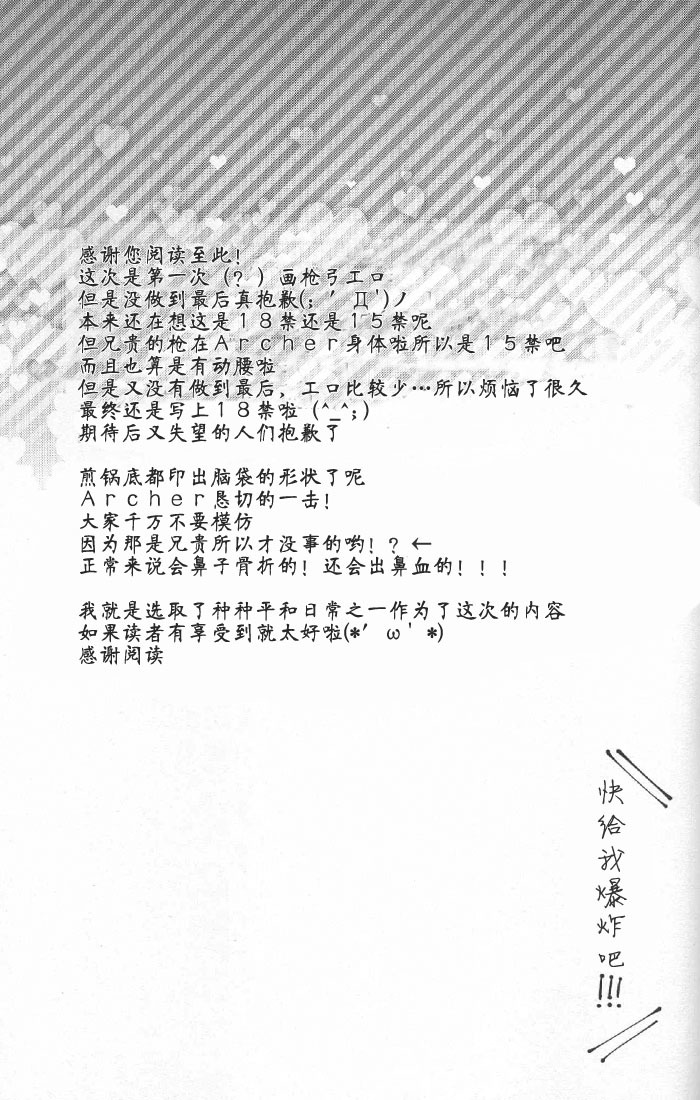 感谢您阅读至此！
这次是第一次（？）画枪弓工口
但是没做到最后真抱歉(；′Д')ノ
本来还在想这是１８禁还是１５禁呢
但兄贵的枪在Ａｒｃｈｅｒ身体啦所以是１５禁吧
而且也算是有动腰啦
但是又没有做到最后，工口比较少…所以烦恼了很久
最终还是写上１８禁啦（^_^;）
期待后又失望的人们抱歉了

煎锅底都印出脑袋的形状了呢
Ａｒｃｈｅｒ恳切的一击！
大家千万不要模仿
因为那是兄贵所以才没事的哟！？←
正常来说会鼻子骨折的！还会出鼻血的！！！

我就是选取了种种平和日常之一作为了这次的内容
如果读者有享受到就太好啦(*′ω'*)
感谢阅读

快给我爆炸吧!!!